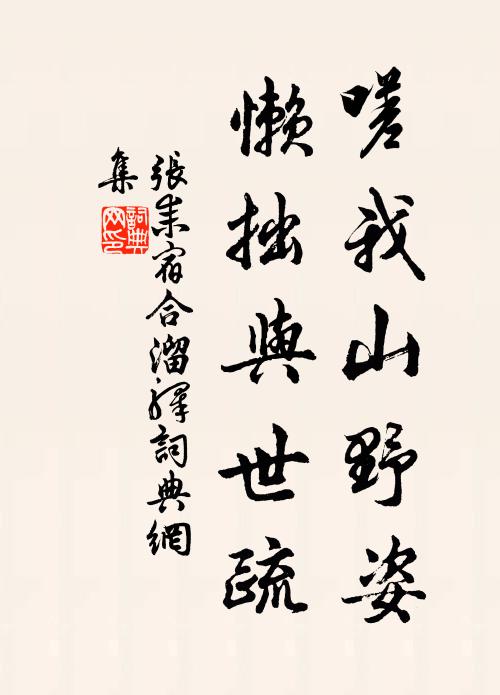 嗟我山野姿
懶拙與世疏
張耒宿合溜驛詞典網
集
詞典网印